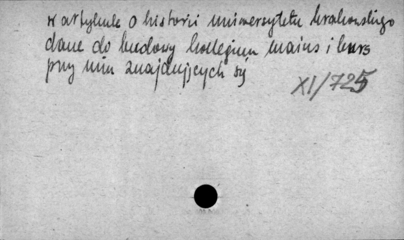 w artykule o historii uniwersytetu krakowskiego
dane do budowy kollegium maius i burs
przy nim znajdujących się
XI/725